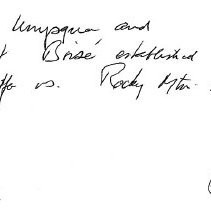 Umpqua, and
Boisé, established
vs. Rocky Mtn.